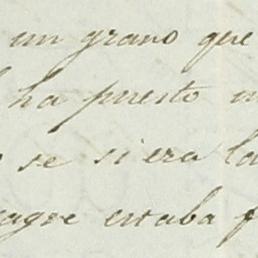 un grano que
ha puesto
se si era la
estaba